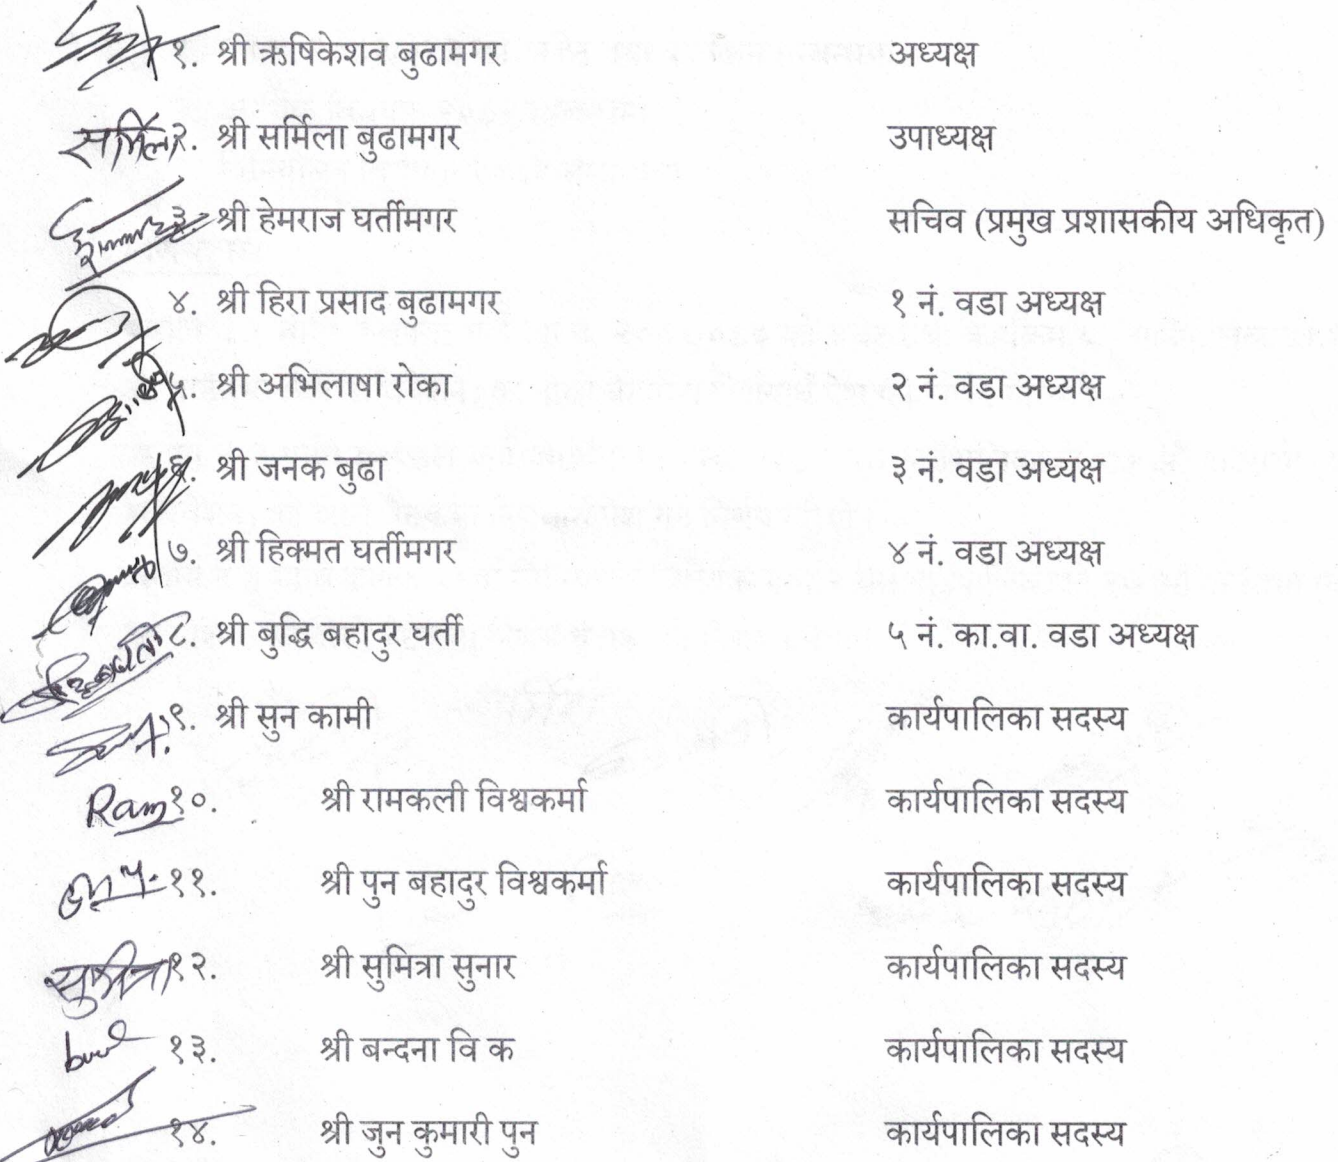 १. श्री ऋषिकेशव बुढामगर अध्यक्ष
सर्मिला २. श्री सर्मिला बुढामगर उपाध्यक्ष
३. श्री हेमराज घर्तीमगर सचिव (प्रमुख प्रशासकीय अधिकृत)
४. श्री हिरा प्रसाद बुढामगर १ नं. वडा अध्यक्ष
५. श्री अभिलाषा रोका २ नं. वडा अध्यक्ष
६. श्री जनक बुढा ३ नं. वडा अध्यक्ष
७. श्री हिक्मत घर्तीमगर ४ नं. वडा अध्यक्ष
८. श्री बुद्धि बहादुर घर्ती ५ नं. का.वा. वडा अध्यक्ष
९. श्री सुन कामी कार्यपालिका सदस्य
Ram १०. श्री रामकली विश्वकर्मा कार्यपालिका सदस्य
११. श्री पुन बहादुर विश्वकर्मा कार्यपालिका सदस्य
सुमित्रा १२. श्री सुमित्रा सुनार कार्यपालिका सदस्य
१३. श्री बन्दना वि क कार्यपालिका सदस्य
१४. श्री जुन कुमारी पुन कार्यपालिका सदस्य